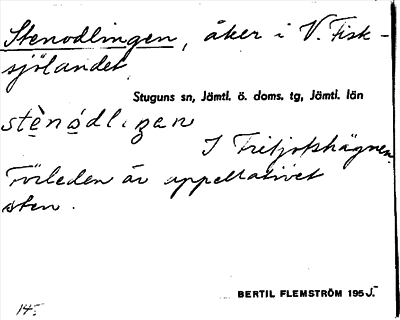 Stenodlingen, åker i V. Fisk-
sjölandet
Stuguns sn, Jämtl. ö. doms. tg, Jämtl. län
stènódlıŋan
I Fritjofshägnen.
Förleden är appellativet
sten.
BERTIL FLEMSTRÖM 1955.
14.